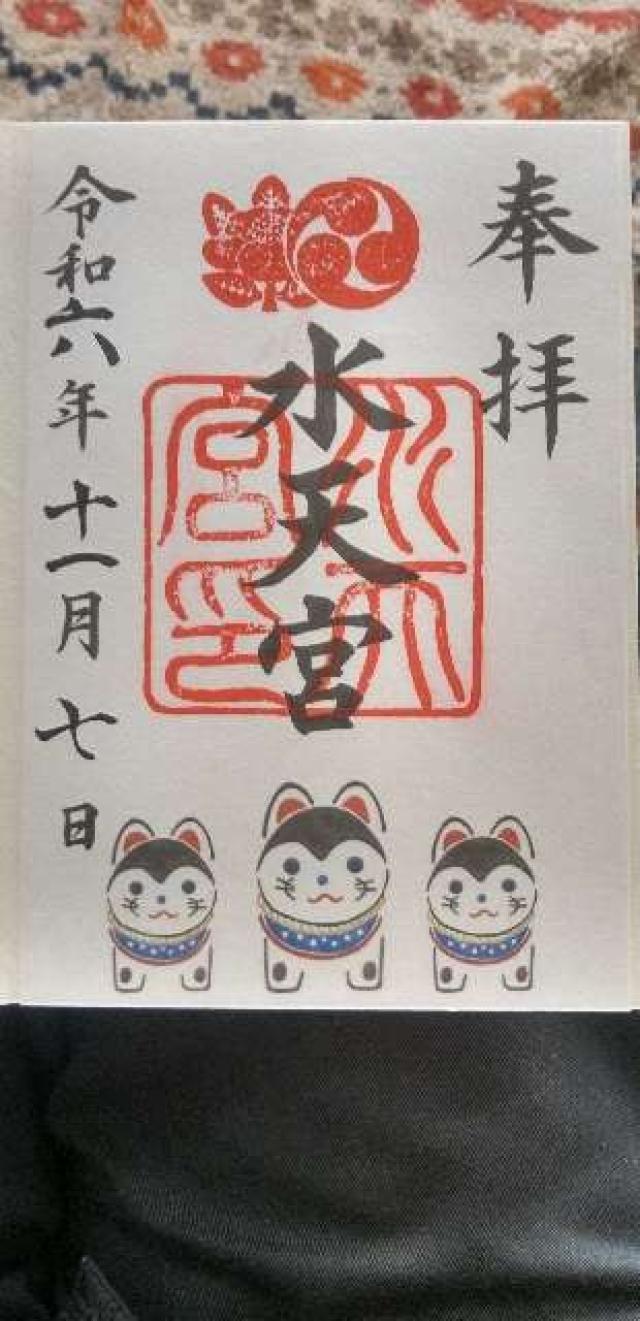 奉拝
水天宮
水天宮印
令和六年十一月七日